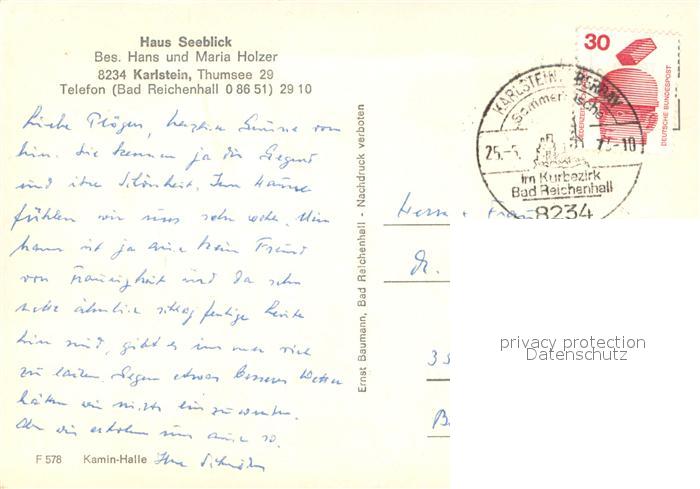 Haus Seeblick
Bes. Hans und Maria Holzer
8234 Karlstein, Thumsee 29
Telefon (Bad Reichenhall 0 86 51) 29 10
Liebe herzliche von
hier. Sie kennen ja die Gegend
und ihre Schönheit. Im Hause
fühlen wir uns sehr wohl. Mein
Mann ist ja auch kein Freund
von Traurigkeit und da sehr
nette ähnlich fertige Leute
hier sind, gibt es immer
zu lachen. Gegen etwas besseres Wetter
hätten wir nichts einzuwenden.
Aber wir erholen uns auch so.
Ihre
F 578 Kamin-Halle
Ernst Baumann, Bad Reichenhall - Nachdruck verboten
30
DEUTSCHE BUNDESPOST
JEDERZEIT
KARLSTEIN
Sommerfrische
25.-5. -10
im Kurbezirk
Bad Reichenhall
8234
Herrn + Frau
Dr.
privacy protection
Datenschutz
3
B